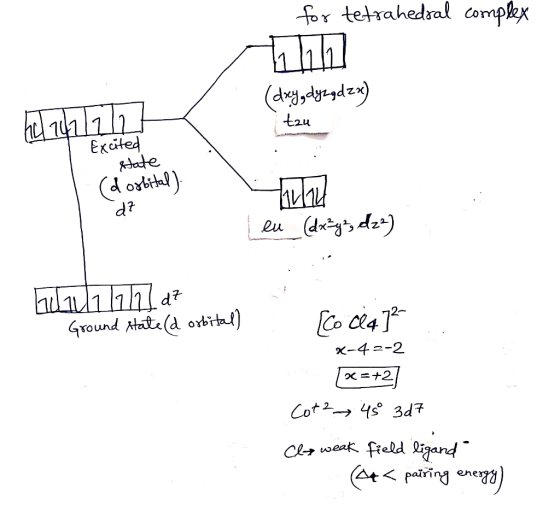 for tetrahedral complex
1 1 1
(dxy, dyz, dzx)
t2u
1L 1L 1 1 1
Excited
state
(d orbital)
d7
1L 1L
eu (dx²-y², dz²)
1L 1L 1 1 1 d7
Ground state (d orbital)
[Co Cl4]²⁻
x-4=-2
x=+2
Co+2 → 4s° 3d7
Cl → weak field ligand -
(Δt < pairing energy)